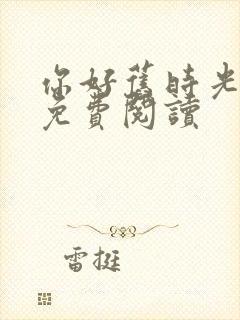 你好舊時光
免費閱讀
雷挺